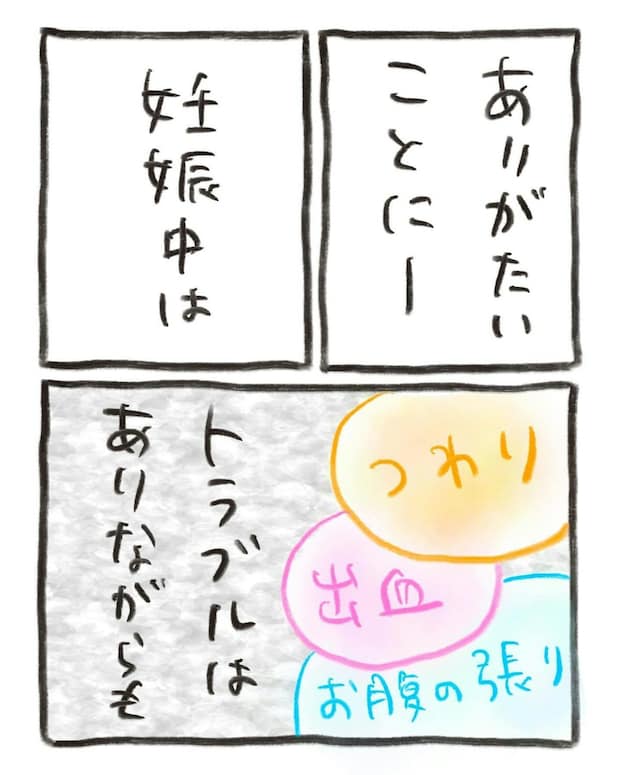 ありがたい
ことにー
妊娠中は
つわり
出血
お腹の張り
トラブルは
ありながらも